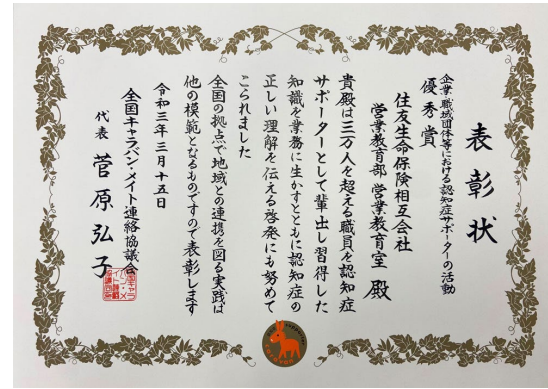 表彰状
企業・職域団体等における認知症サポーターの活動
優秀賞
住友生命保険相互会社
営業教育部 営業教育室 殿
貴殿は三万人を超える職員を認知症
サポーターとして輩出し習得した
知識を業務に生かすとともに認知症の
正しい理解を伝える啓発にも努めて
こられました
全国の拠点で地域との連携を図る実践は
他の模範となるものですので表彰します
令和三年三月十五日
全国キャラバン・メイト連絡協議会
代表 菅原弘子